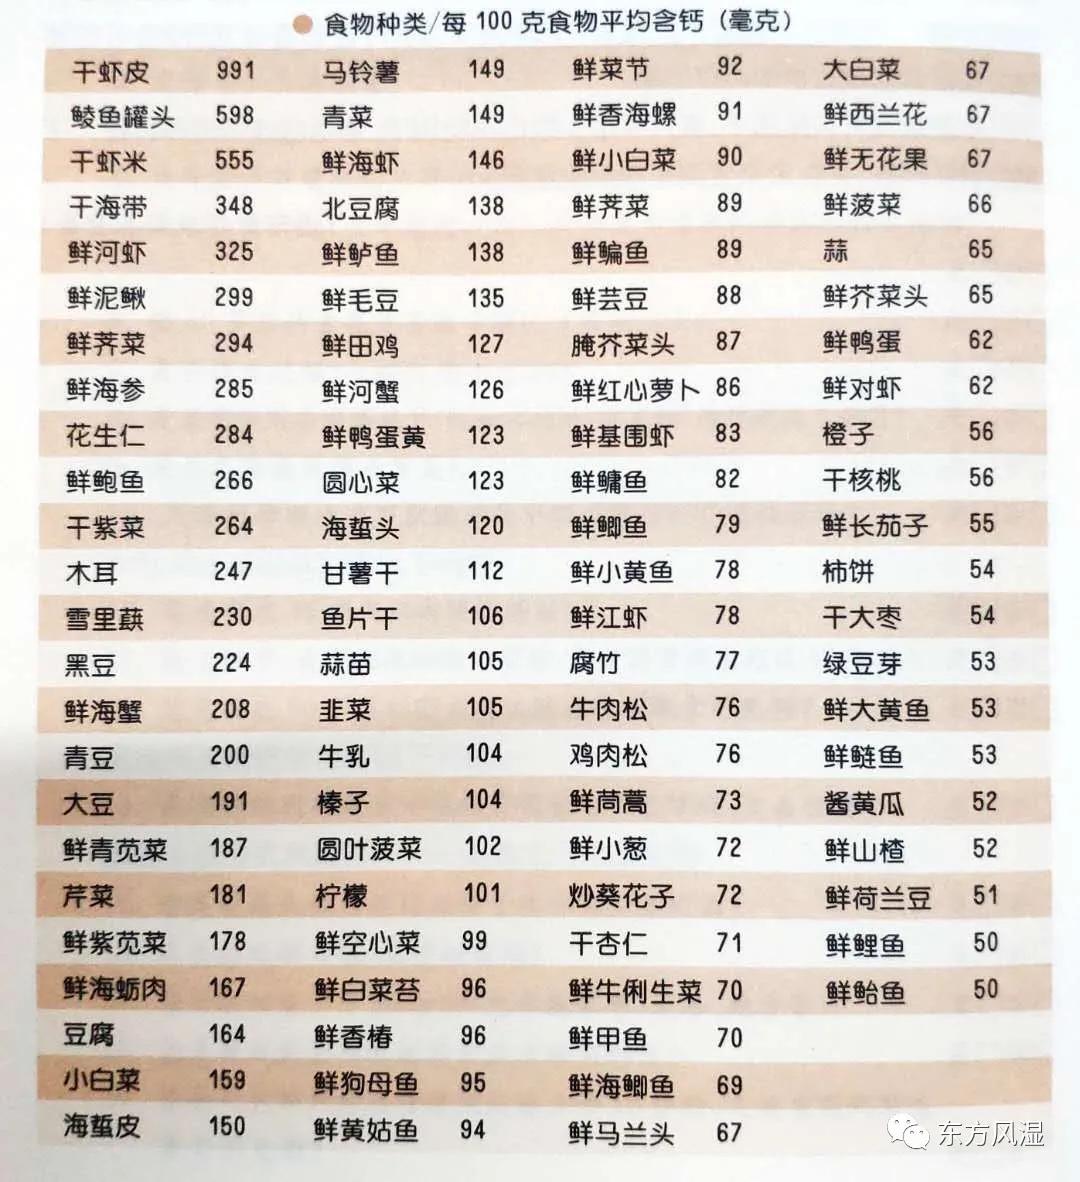 食物种类/每 100 克食物平均含钙（毫克）
干虾皮 991 马铃薯 149 鲜菜节 92 大白菜 67
鲮鱼罐头 598 青菜 149 鲜香海螺 91 鲜西兰花 67
干虾米 555 鲜海虾 146 鲜小白菜 90 鲜无花果 67
干海带 348 北豆腐 138 鲜荠菜 89 鲜菠菜 66
鲜河虾 325 鲜鲈鱼 138 鲜鳊鱼 89 蒜 65
鲜泥鳅 299 鲜毛豆 135 鲜芸豆 88 鲜芥菜头 65
鲜荠菜 294 鲜田鸡 127 腌芥菜头 87 鲜鸭蛋 62
鲜海参 285 鲜河蟹 126 鲜红心萝卜 86 鲜对虾 62
花生仁 284 鲜鸭蛋黄 123 鲜基围虾 83 橙子 56
鲜鲍鱼 266 圆心菜 123 鲜鳙鱼 82 干核桃 56
干紫菜 264 海蜇头 120 鲜鲫鱼 79 鲜长茄子 55
木耳 247 甘薯干 112 鲜小黄鱼 78 柿饼 54
雪里蕻 230 鱼片干 106 鲜江虾 78 干大枣 54
黑豆 224 蒜苗 105 腐竹 77 绿豆芽 53
鲜海蟹 208 韭菜 105 牛肉松 76 鲜大黄鱼 53
青豆 200 牛乳 104 鸡肉松 76 鲜鲢鱼 53
大豆 191 榛子 104 鲜茼蒿 73 酱黄瓜 52
鲜青苋菜 187 圆叶菠菜 102 鲜小葱 72 鲜山楂 52
芹菜 181 柠檬 101 炒葵花子 72 鲜荷兰豆 51
鲜紫苋菜 178 鲜空心菜 99 干杏仁 71 鲜鲤鱼 50
鲜海蛎肉 167 鲜白菜苔 96 鲜牛俐生菜 70 鲜鲐鱼 50
豆腐 164 鲜香椿 96 鲜甲鱼 70
小白菜 159 鲜狗母鱼 95 鲜海鲫鱼 69
海蜇皮 150 鲜黄姑鱼 94 鲜马兰头 67
东方风湿